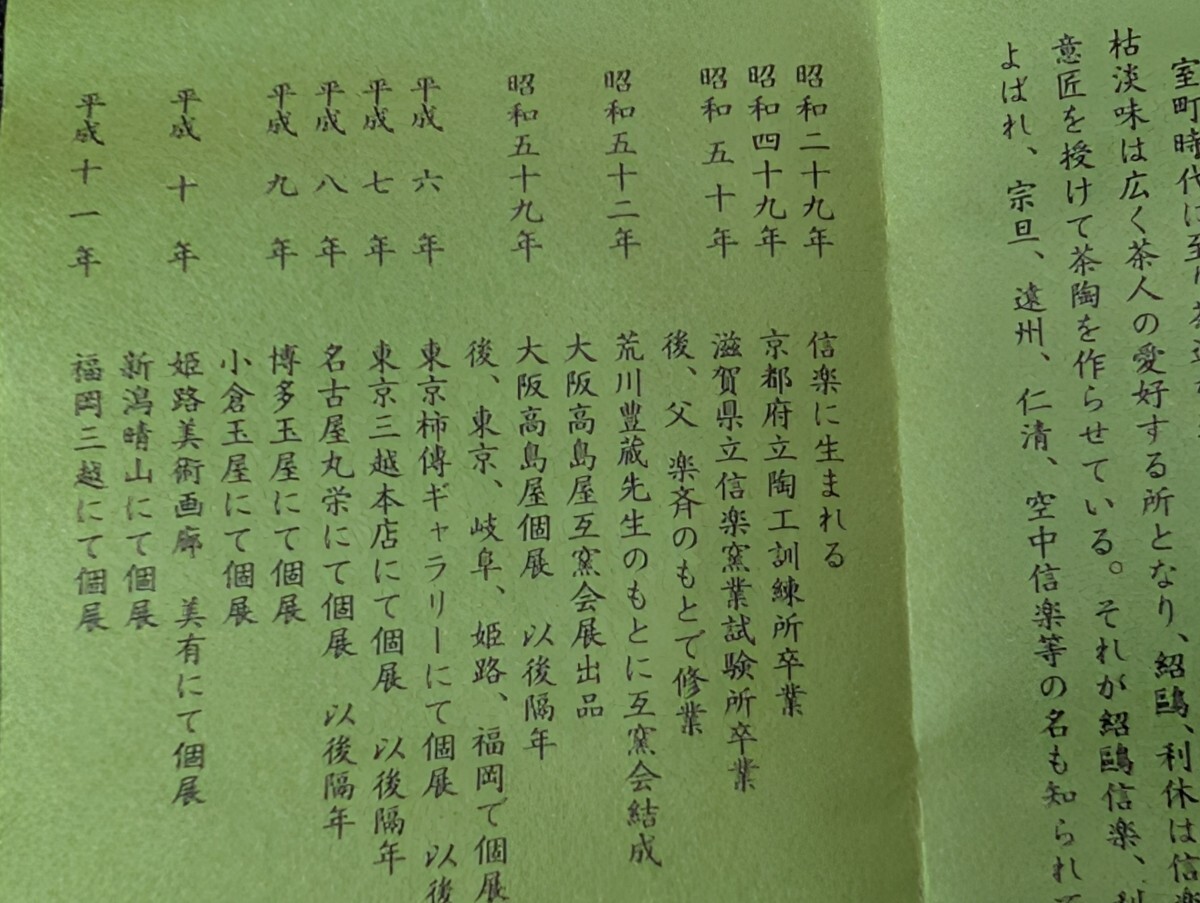 室町時代に至り茶道
枯淡味は広く茶人の愛好する所となり、紹鷗、利休は信楽
意匠を授けて茶陶を作らせている。それが紹鷗信楽、利
よばれ、宗旦、遠州、仁清、空中信楽等の名も知られて
昭和二十九年 信楽に生まれる
昭和四十九年 京都府立陶工訓練所卒業
昭和五十年 滋賀県立信楽窯業試験所卒業
後、父 楽斉のもとで修業
昭和五十二年 荒川豊蔵先生のもとに互窯会結成
大阪高島屋互窯会展出品
昭和五十九年 大阪高島屋個展 以後隔年
後、東京、岐阜、姫路、福岡で個展
平成六年 東京柿傳ギャラリーにて個展 以後
平成七年 東京三越本店にて個展 以後隔年
平成八年 名古屋丸栄にて個展 以後隔年
平成九年 博多玉屋にて個展
小倉玉屋にて個展
平成十年 姫路美術画廊 美有にて個展
新潟晴山にて個展
平成十一年 福岡三越にて個展